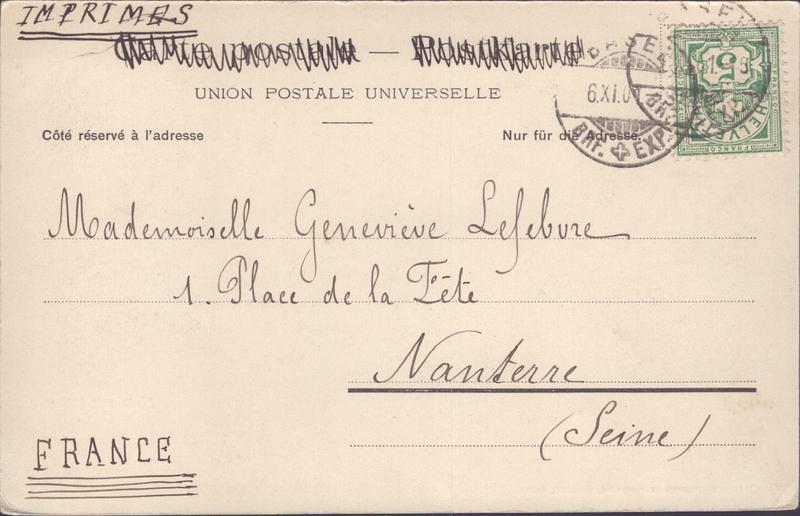 IMPRIMÉS
Carte postale — Postkarte
UNION POSTALE UNIVERSELLE
Côté réservé à l'adresse
Nur für die Adresse.
BASEL
6.XI.0
BRF. EXP.
5
HELVETIA
FRANCO
Mademoiselle Geneviève Lefebvre
1. Place de la Fête
Nanterre
(Seine)
FRANCE